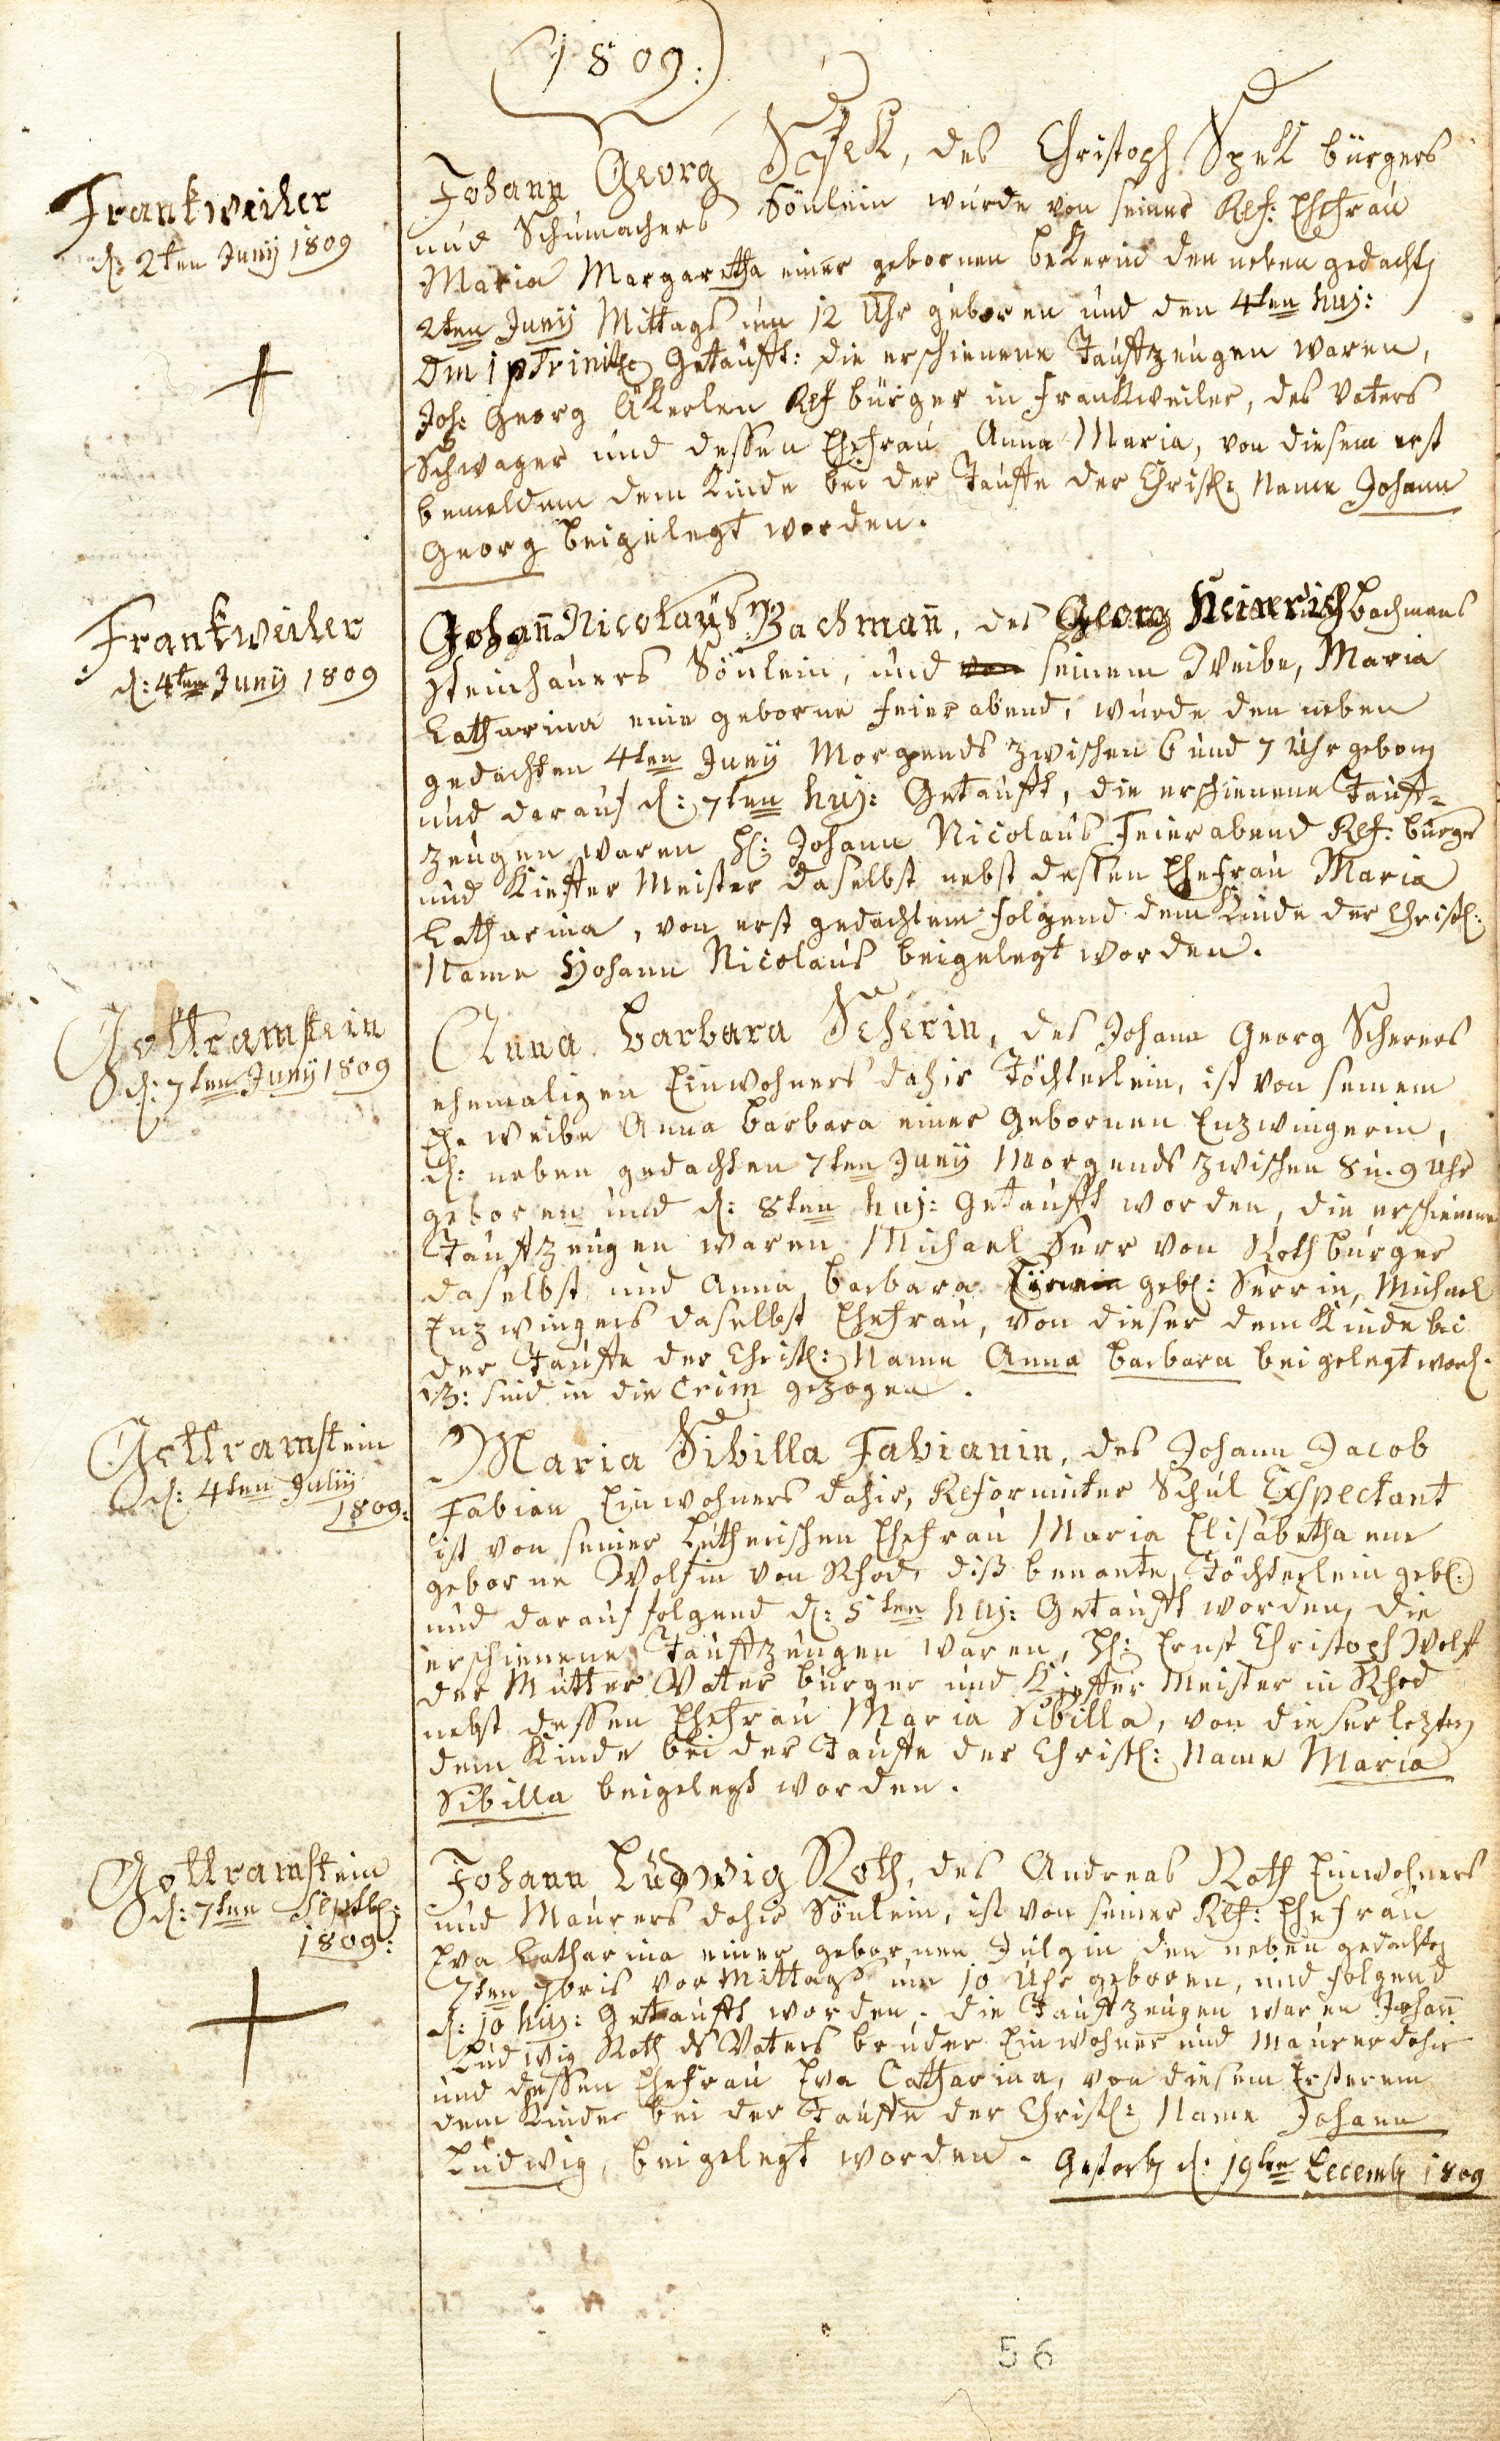 1809:
Frankweiler
d: 2ten Junÿ 1809
Johann Georg Spek, des Christoph Spek bürgers
und Schumachers Sönlein wurde von seiner Ref: Ehefrau
Maria Margaretha einer gebornen beckerin den neben gedachten
2ten Junÿ Mittags um 12 Uhr geboren und den 4ten huj:
Dm 1 p Trinit: Getaufft: die erschienene Tauffzeugen waren,
Joh: Georg Akerlen Ref bürger in Frankweiler, des Vaters
Schwager und dessen Ehefrau Anna Maria, von diesem erst
bemeldem dem Kinde bei der Tauffe der Christl: Name Johann
Georg beigelegt worden.
Frankweiler
d: 4ten Junÿ 1809
Johann Nicolaus Bachmann, des Georg Heinrich bachmans
steinhauers Sönlein, und von seinem Weibe, Maria
Catharina eine geborne Feierabend, wurde den neben
gedachten 4ten Junÿ Morgends zwischen 6 und 7 Uhr geboren
und darauf d: 7ten huj: Getaufft, die erschienene Tauff=
zeugen waren H: Johann Nicolaus Feierabend Ref: bürger
und Kieffer Meister daselbst nebst dessen Ehefrau Maria
Catharina, von erst gedachtem folgend dem Kinde der Christl:
Name Johann Nicolaus beigelegt worden.
Gottramstein
d: 7ten Junÿ 1809
Anna Barbara Scherin, des Johann Georg Scherers
ehemaligen Einwohners dahir Töchterlein, ist von seinem
Ehe weibe Anna Barbara einer Gebornen Enzwingerin,
d: neben gedachten 7ten Junÿ Morgends zwischen 8 u. 9 Uhr
geboren und d: 8ten huj: Getaufft worden, die erschienene
Tauffzeugen waren Michael Serr von Roth bürger
daselbst und Anna Barbara geb: Serrin, Michael
Enzwingers daselbst Ehefrau, von dieser dem Kinde bei
der Tauffe der Christl: Name Anna Barbara beigelegt word.
NB: sind in die Crim gezogen.
Gottramstein
d: 4ten Julÿ
1809:
Maria Sibilla Fabianin, des Johann Jacob
Fabian Einwohners dahir, Reformirter Schul Exspectant
ist von seiner Lutherischen Ehefrau Maria Elisabetha eine
geborne Wolfin von Rhod, diß benante Töchterlein geb:
und darauf folgend d: 5ten huj: Getaufft worden, die
erschienene Tauffzeugen waren, H: Ernst Christoph Wolf
der Mutter Vater bürger und Kieffer Meister in Rhod
nebst dessen Ehefrau Maria Sibilla, von dieser lezten
dem Kinde bei der Tauffe der Christl: Name Maria
Sibilla beigelegt worden.
Gottramstein
d: 7ten Septb:
1809:
Johann Ludwig Roth, des Andreas Roth Einwohners
und Maurers dahir Sönlein, ist von seiner Ref: Ehefrau
Eva Catharina einer gebornen den neben gedachten
7ten 7bris vor Mittags um 10 Uhr geboren, und folgend
d: 10 huj: Getaufft worden. die Tauffzeugen waren Johann
Ludwig Roth ds Vaters bruder Einwohner und Maurer dahir
und dessen Ehefrau Eva Catharina, von diesem Ersterem
dem Kinde bei der Tauffe der Christl: Name Johann
Ludwig, beigelegt worden. Gestorb d: 19ten Decemb 1809
56